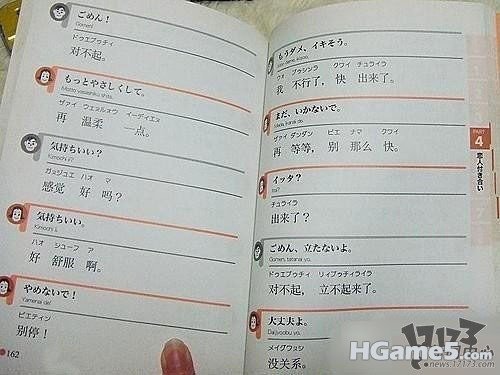 ごめん！
Gomen!
ドゥエブゥチィ
对不起。
もっとやさしくして。
Motto yasashiku shite.
ザァイ ウェンルォウ イーディエヌ
再 温柔 一点。
気持ちいい？
Kimochi ii?
ガンジュエ ハオ マ
感觉 好 吗？
気持ちいい。
Kimochi ii.
ハオ シューフ ア
好 舒服 啊。
やめないで！
Yamenai de!
ビエティン
别停！
162
もうダメ、イキそう。
Mou dame, ikisou.
ウオ ブゥシンラ クワイ チュライラ
我 不行了，快 出来了。
まだ、いかないで。
Mada, ikanai de.
ザァイ ダンダン ビエ ナマ クワイ
再 等等，别 那么 快。
イッタ？
Itta?
チュライラ
出来了？
ごめん、立たないよ。
Gomen, tatanai yo.
ドゥエブゥチィ リィブゥチィライラ
对不起，立不起来了。
大丈夫よ。
Daijyoubu yo.
メイグワンシ
没关系。
PART
4
恋人付き合い
17173
HGame5.com
news.17173.com